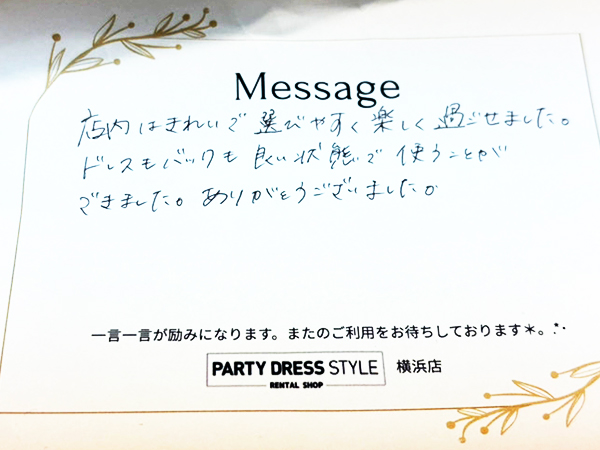 Message
店内はきれいで選びやすく楽しく過ごせました。
ドレスもバックも良い状態で使うことが
できました。ありがとうございました。
一言一言が励みになります。またのご利用をお待ちしております＊。.*･
PARTY DRESS STYLE
RENTAL SHOP
横浜店